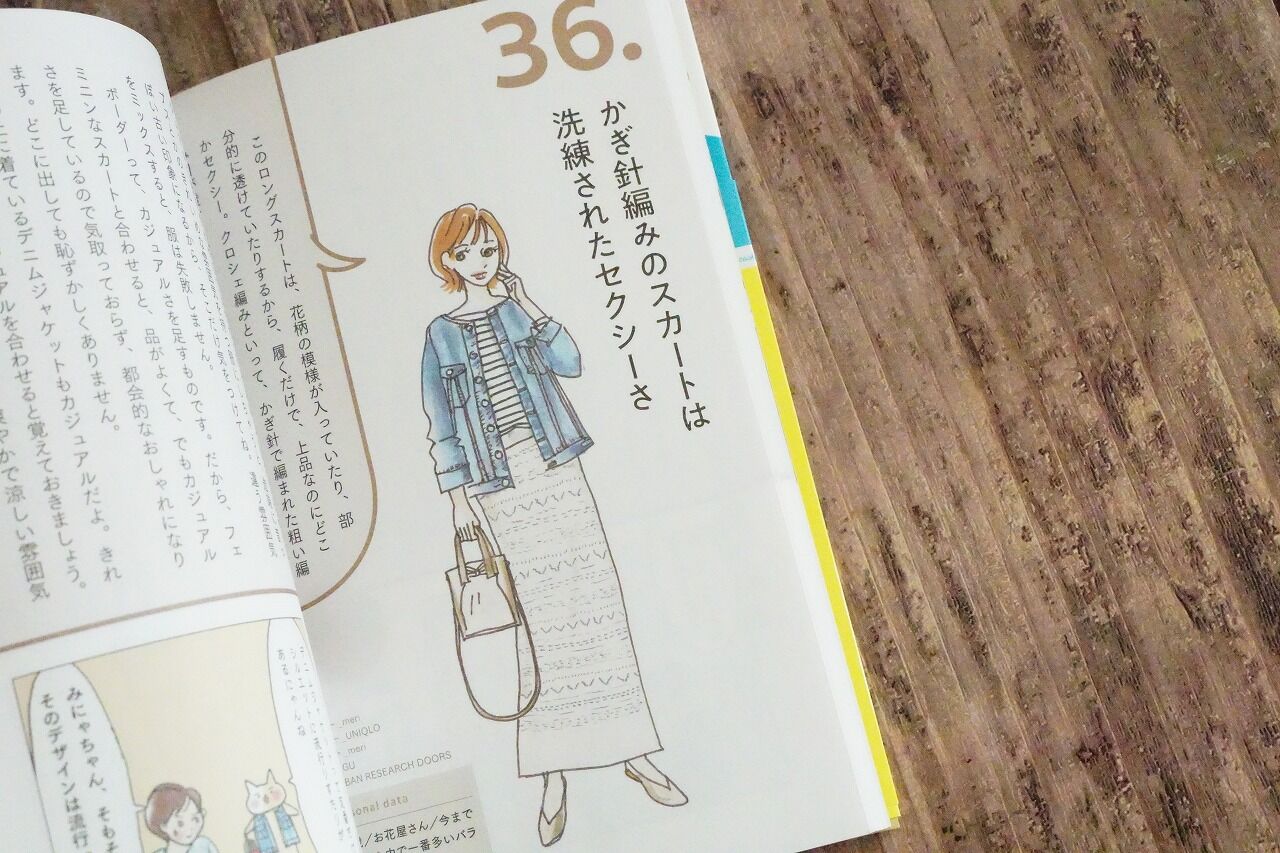 36.
かぎ針編みのスカートは
洗練されたセクシーさ
このロングスカートは、花柄の模様が入っていたり、部
分的に透けていたりするから、履くだけで、上品なのにどこ
かセクシー。クロシェ編みといって、かぎ針で編まれた粗い編
ぽい古い印象になるから、そこだけ気をつけてね。
をミックスすると、服は失敗しません。
ボーダーって、カジュアルさを足すものです。だから、フェ
ミニンなスカートと合わせると、品がよくて、でもカジュアル
さを足しているので気取っておらず、都会的なおしゃれになり
ます。どこに出しても恥ずかしくありません。
に着ているデニムジャケットもカジュアルだよ。きれ
ュアルを合わせると覚えておきましょう。
やかで涼しい雰囲気
_meri
_UNIQLO
_meri
GU
BAN RESEARCH DOORS
sonal data
/お花屋さん/今まで
で一番多いバラ
あるにゃんな
みにゃちゃん、そもそ
そのデザインは流行